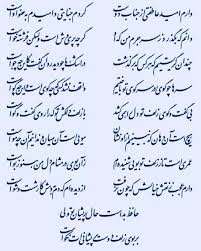 دارم امید عاطفتی از جناب دوست کردم جنایتی و امیدم به عفو اوست
دانم که بگذرد ز سر جرم من که او گر چه پریوش است ولیکن فرشته خوست
چندان گریستیم که هر کس که برگذشت در اشک ما چو دید روان گفت کاین چه جوست
سرها چو گوی در سر کوی تو باختیم واقف نشد کسی که چه گوی است و این چه کوست
بی گفت و گوی زلف تو دل را همی کشد با زلف دلکش تو که را روی گفت و گوست
هیچ است آن دهان و نبینم از او نشان موی است آن میان و ندانم که آن چه موست
عمری است تا ز زلف تو بویی شنیده‌ام زان بوی در مشام دل من هنوز بوست
دارم عجب ز نقش خیالش که چون نرفت از دیده‌ام که دم به دمش کار شست و شوست
حافظ بد است حال پریشان تو ولی
بر بوی زلف دوست پریشانیت نکوست